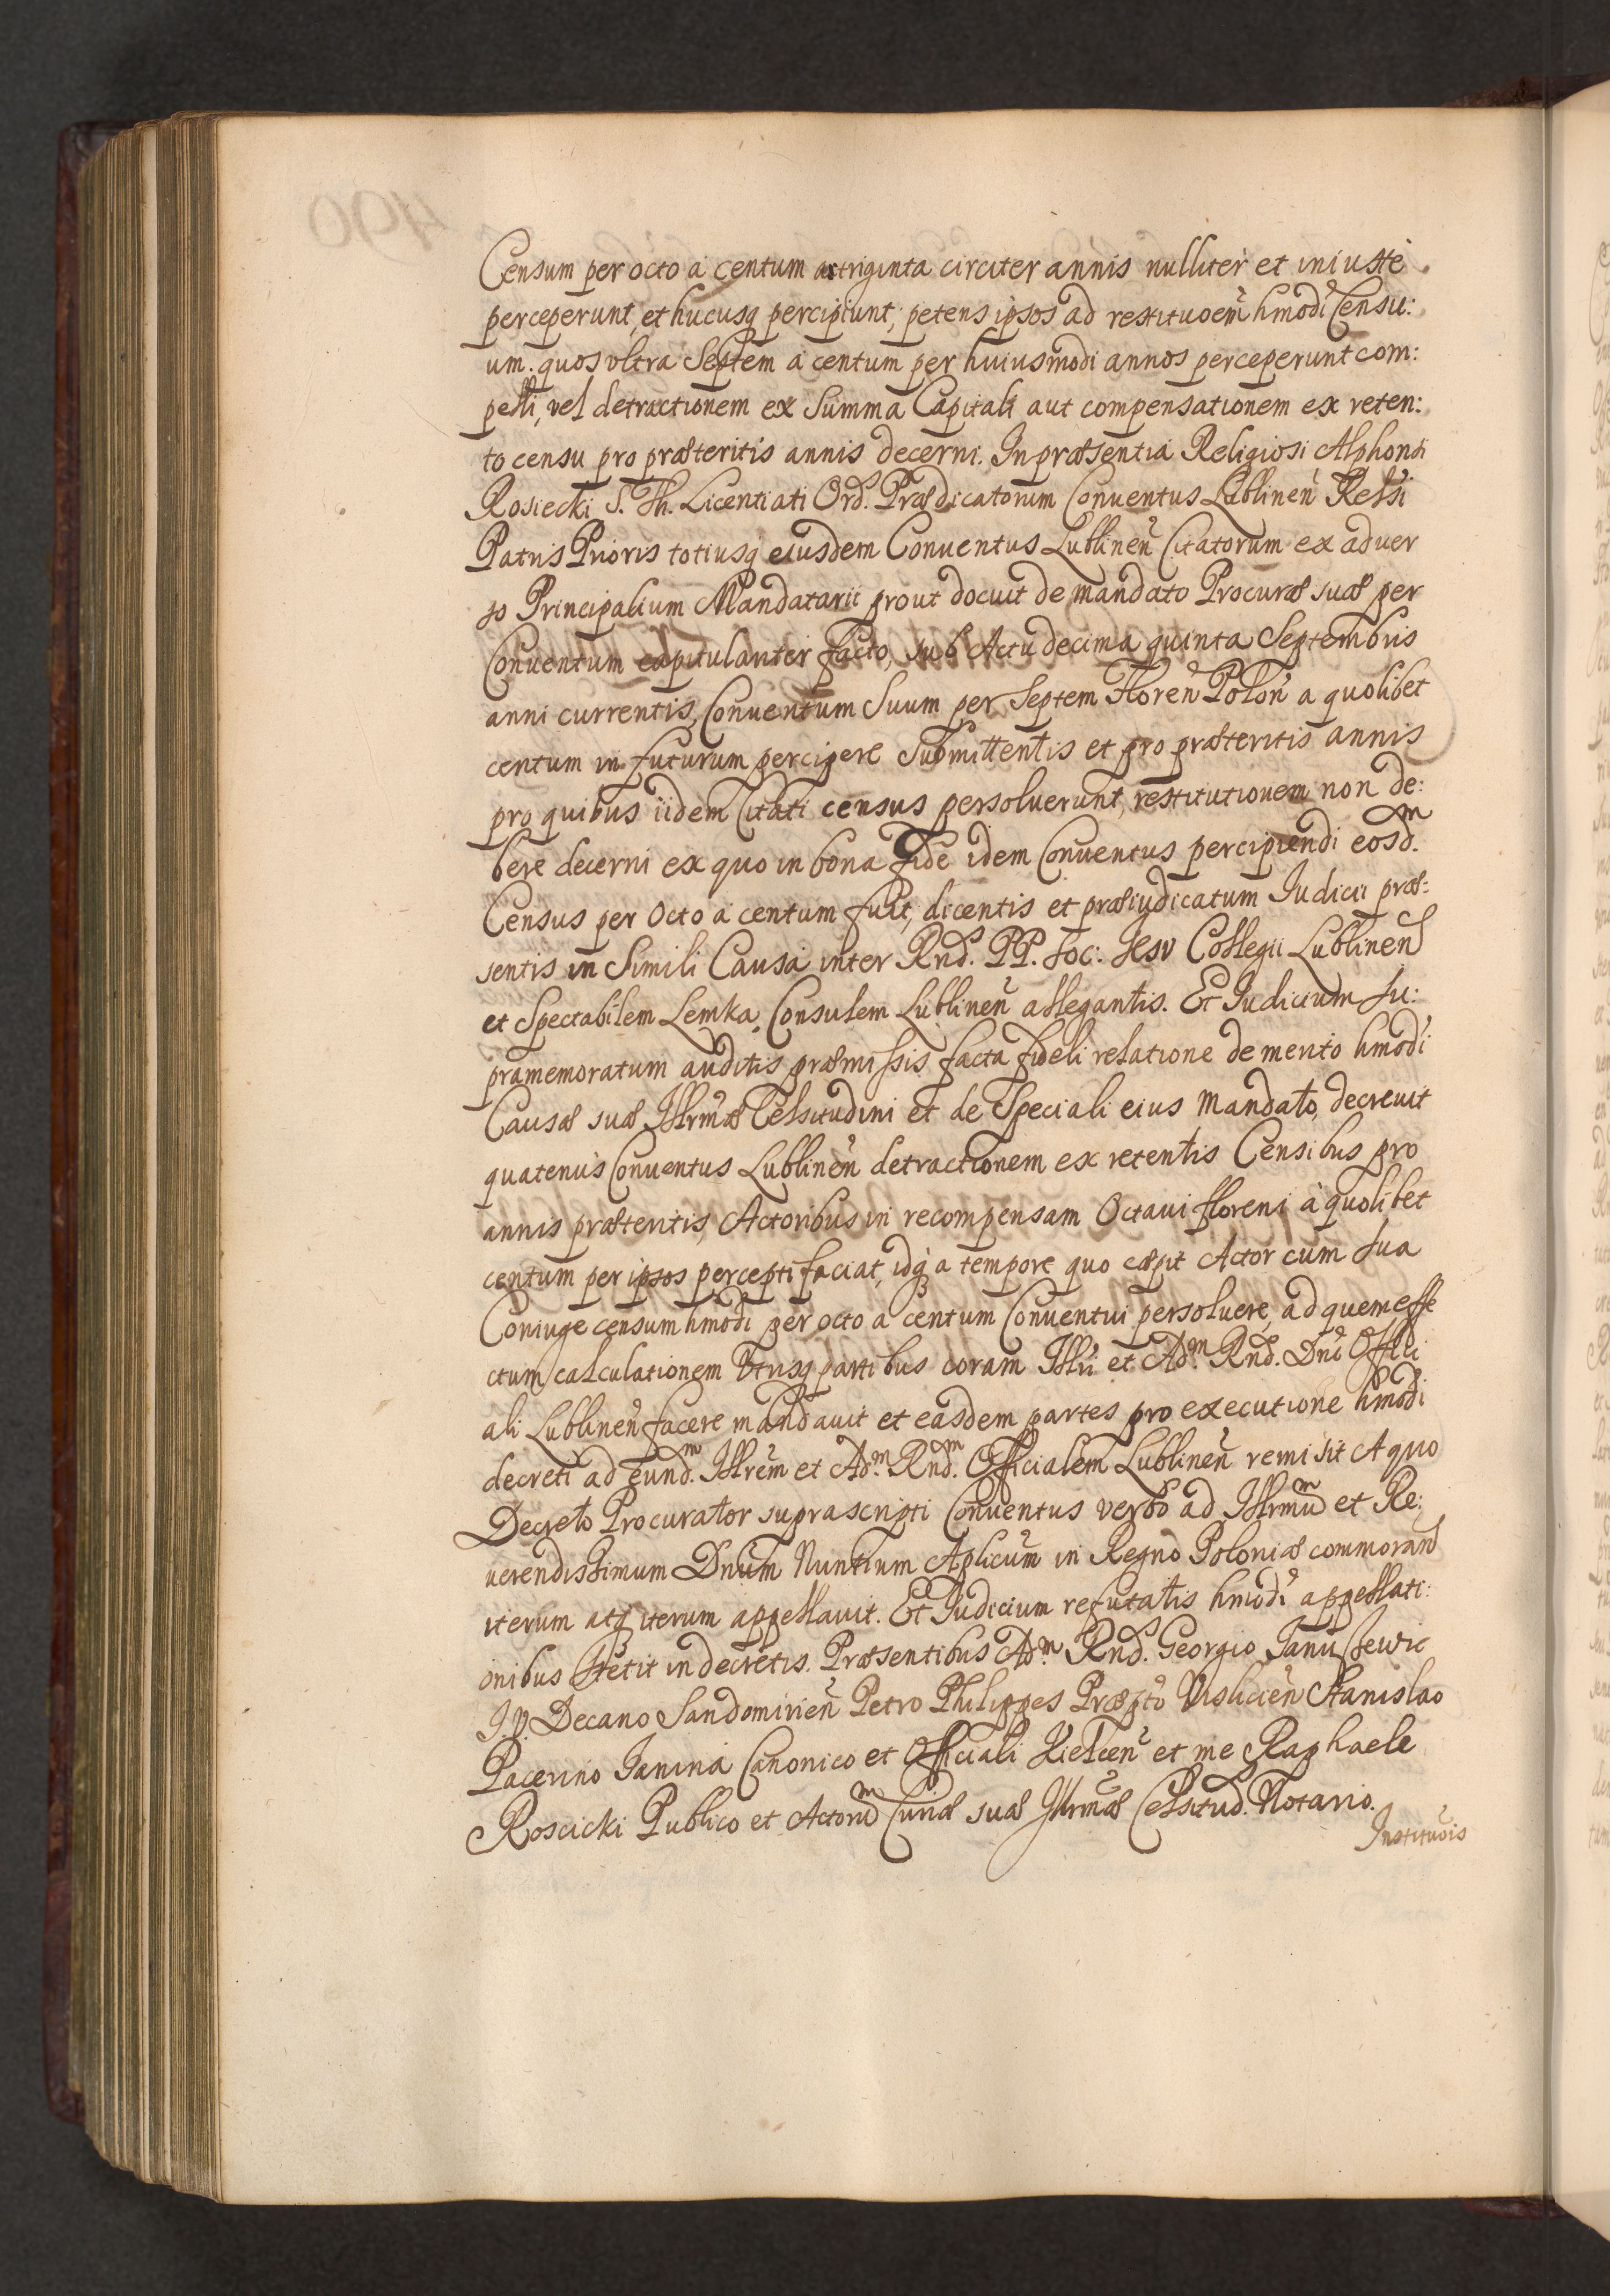 Censum per octo à centum a triginta circiter annis nulliter et iniustè
perceperunt, et hucusq percipiunt; petens ipsos ad restituoem̃ hmodi Censu:
um. quos vltra Septem à centum per huiusmodi annos perceperunt com:
pelli, vel detractionem ex Summa Capitali aut compensationem ex reten:
to censu pro præteritis annis decerni. In præsentia Religiosi Alphonsi
Rosiecki S. Th. Licentiati Ord. Prædicatorum Conuentus Lublineñ
Patris Prioris totiusq eiusdem Conuentus Lublineñ Citatorum ex aduer
so Principalium Mandatarii prout docuit de mandato Procuræ suæ per
Conuentum capitulariter facto, sub Actu decima quinta Septembris
anni currentis, Conuentum Suum per Septem Floreñ Poloñ a quolibet
centum in futurum percipere Submittentis et pro præteritis annis
pro quibus iidem Citati census persoluerunt, restitutionem non de:
bere decerni ex quo in bona Fide idem Conuentus percipiendi eosd.m
Census per Octo à centum fuit, dicentis et præiudicatum Iudicii præ:
sentis in Simili Causa inter Rnd. PP. Soc: Iesv Collegii Lublineñ
et Spectabilem Lemka, Consulem Lublineñ allegantis. Et Iudicium Su:
pramemoratum auditis præmissis facta fideli relatione de merito hmodi
Causæ suæ Illrmæ Celsitudini et de Speciali eius Mandato, decreuit
quatenus Conuentus Lublineñ detractionem ex retentis Censibus pro
annis præteritis, Actoribus in recompensam Octaui floreni à quolibet
centum per ipsos percepti faciat, idq a tempore quo cæpit Actor cum Sua
Coniuge censum hmodi per octo à centum Conuentui persoluere, ad quem effe
ctum calculationem Vtrisq partibus coram Illri et Ad.m Rnd. Dno Offici
ali Lublineñ facere mandauit et easdem partes pro executione hmodi
decreti ad eund.m Illrem et Ad.m Rnd.m Officialem Lublineñ remisit A quo
Decreto Procurator suprascripti Conuentus verbo ad Illrmũm et Re:
uerendissimum Dnum Nuntium Aplicum in Regno Poloniæ commorañ
iterum atq iterum appellauit. Et Iudicium refutatis hmodi appellati:
onibus Stetit in decretis. Præsentibus Ad.m Rnd. Georgio Ianuszewic
I.V. Decano Sandomirieñ Petro Philippes Præpto Vislicieñ Stanislao
Pacerino Ianina Canonico et Officiali Kielceñ et me Raphaele
Roscicki Publico et Actorũm Curiæ suæ Illrmæ Celsitud. Notario.
Instituõis